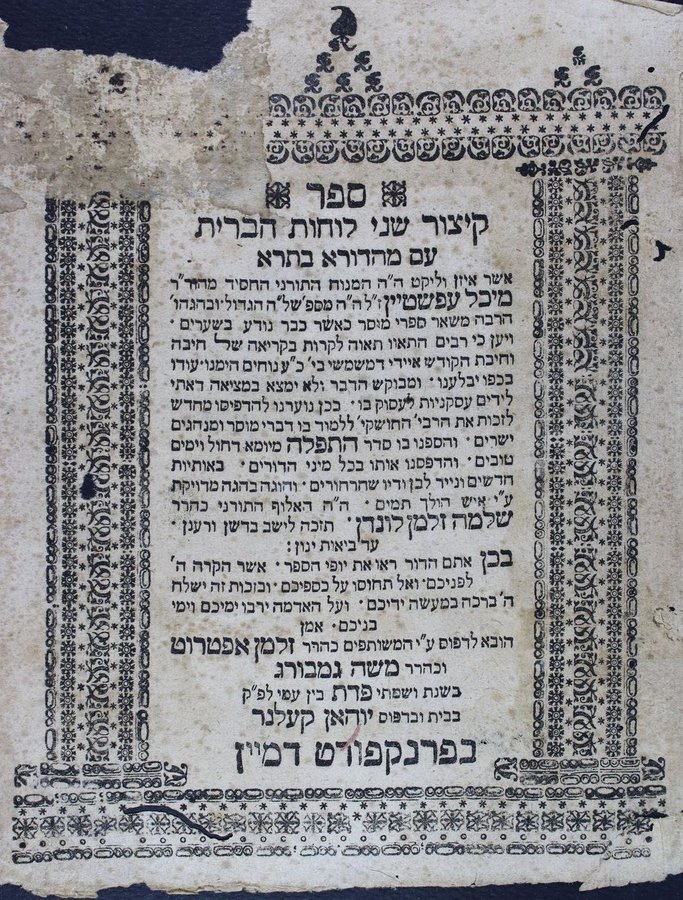 ספר
קיצור שני לוחות הברית
עם מהדורא בתרא
אשר איזן וליקט ה"ה המנוח התורני החסיד מהור"ר
מיכל עפשטיין ז"ל ה"ה מספ' של"ה הגדול ובהגהו'
הרבה משאר ספרי מוסר כאשר כבר נודע בשערים ·
ויען כי רבים התאוו תאוה לקרות בקריאה של חיבה
וחיבת הקודש איידי דמשמשי בי' כ"ע נוחים הימנו עודו
בכפו יבלענו · ומבוקש הדבר ולא ימצא במציאה דאתי
לידים עסקניות לעסוק בו · בכן נוערנו להדפיסו מחדש
לזכות את הרבי' החושקי' ללמוד בו דברי מוסר ומנהגים
ישרים · והספנו בו סדר התפלה מיומא דחול וימים
טובים · והדפסנו אותו בכל מיני הדורים · באותיות
חדשים ונייר לבן ודיו שחרחורים · והוגה בהגה מדויקת
ע"י איש הולך תמים · ה"ה האלוף התורני כהרר
שלמה זלמן לונדן · תזכה לישב בדשן ורענן ·
עד ביאות ינון :
בכן אתם הדור ראו את יופי הספר · אשר הקרה ה'
לפניכם · ואל תחוסו על כספיכם · ובזכות זה ישלח
ה' ברכה במעשה ידיכם · ועל האדמה ירבו ימיכם וימי
בניכם · אמן
הובא לדפוס ע"י המשותפים כהרר זלמן אפטרוט
וכהרר משה גמבורג
בשנת ושפתי פדת בין עמי לפ"ק
בבית ובדפוס יוהאן קעלנר
בפרנקפורט דמיין